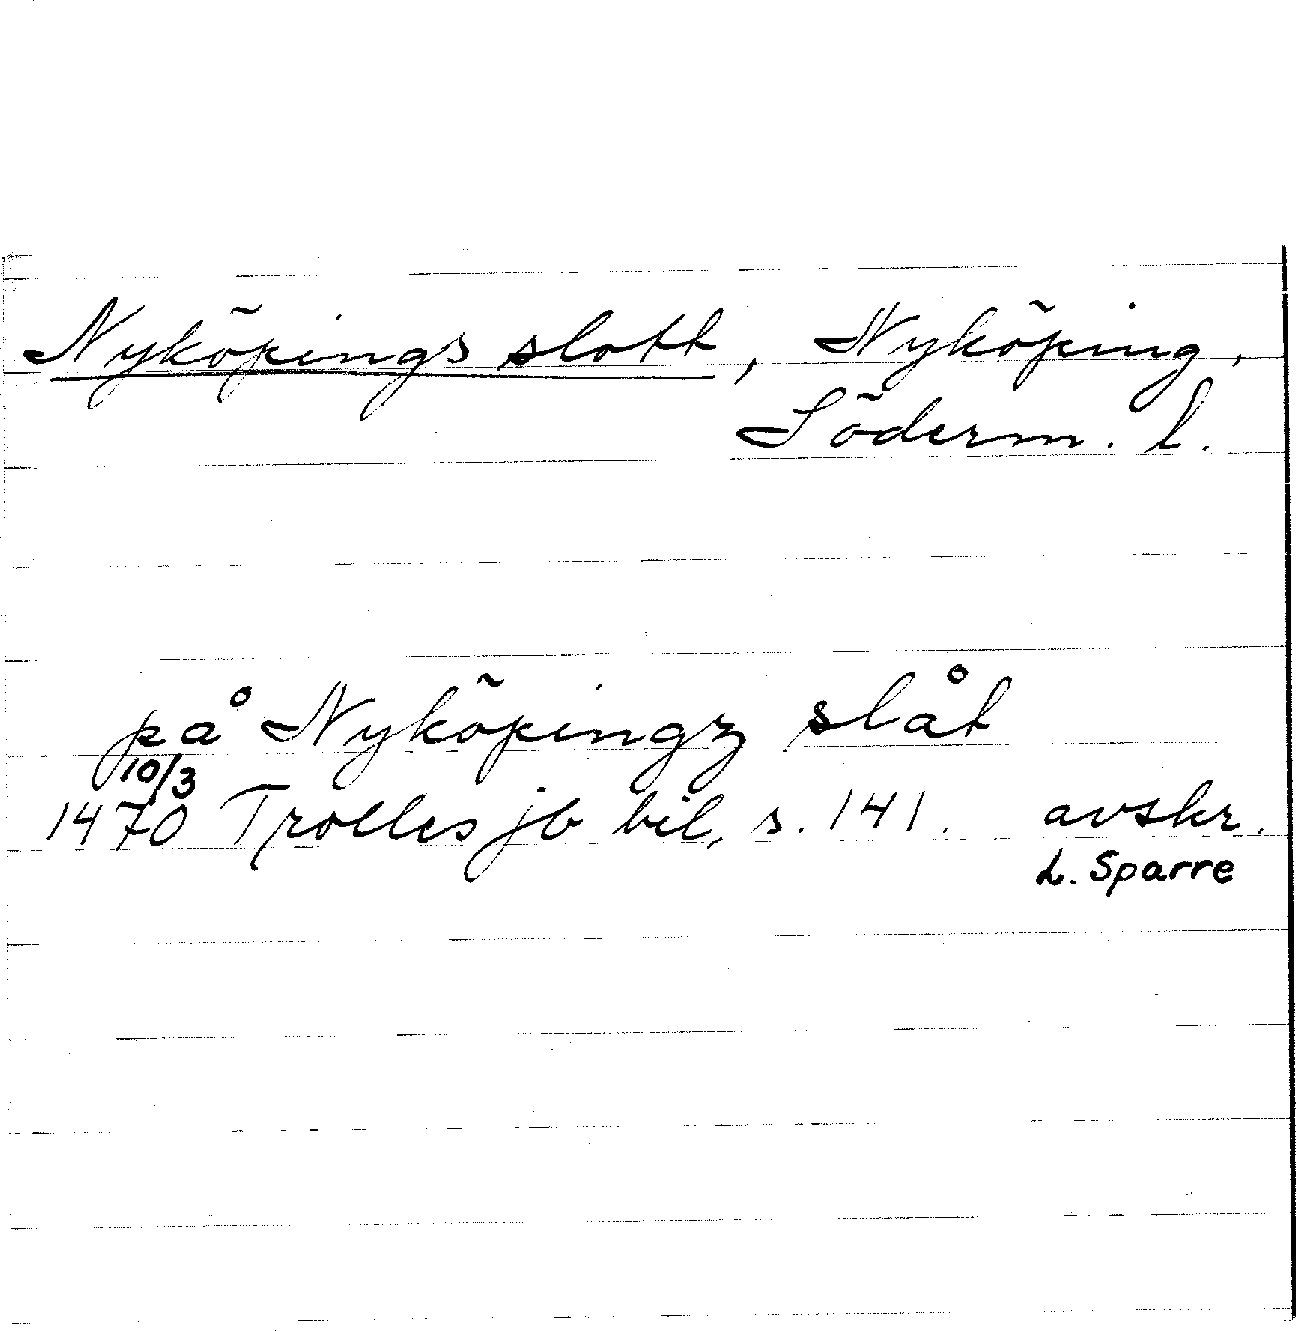 Nyköpings slott, Nyköping,
Söderm. l.
på Nyköpingz slåt
10/3
1470 Trolles jb bil, s. 141. avskr.
L. Sparre